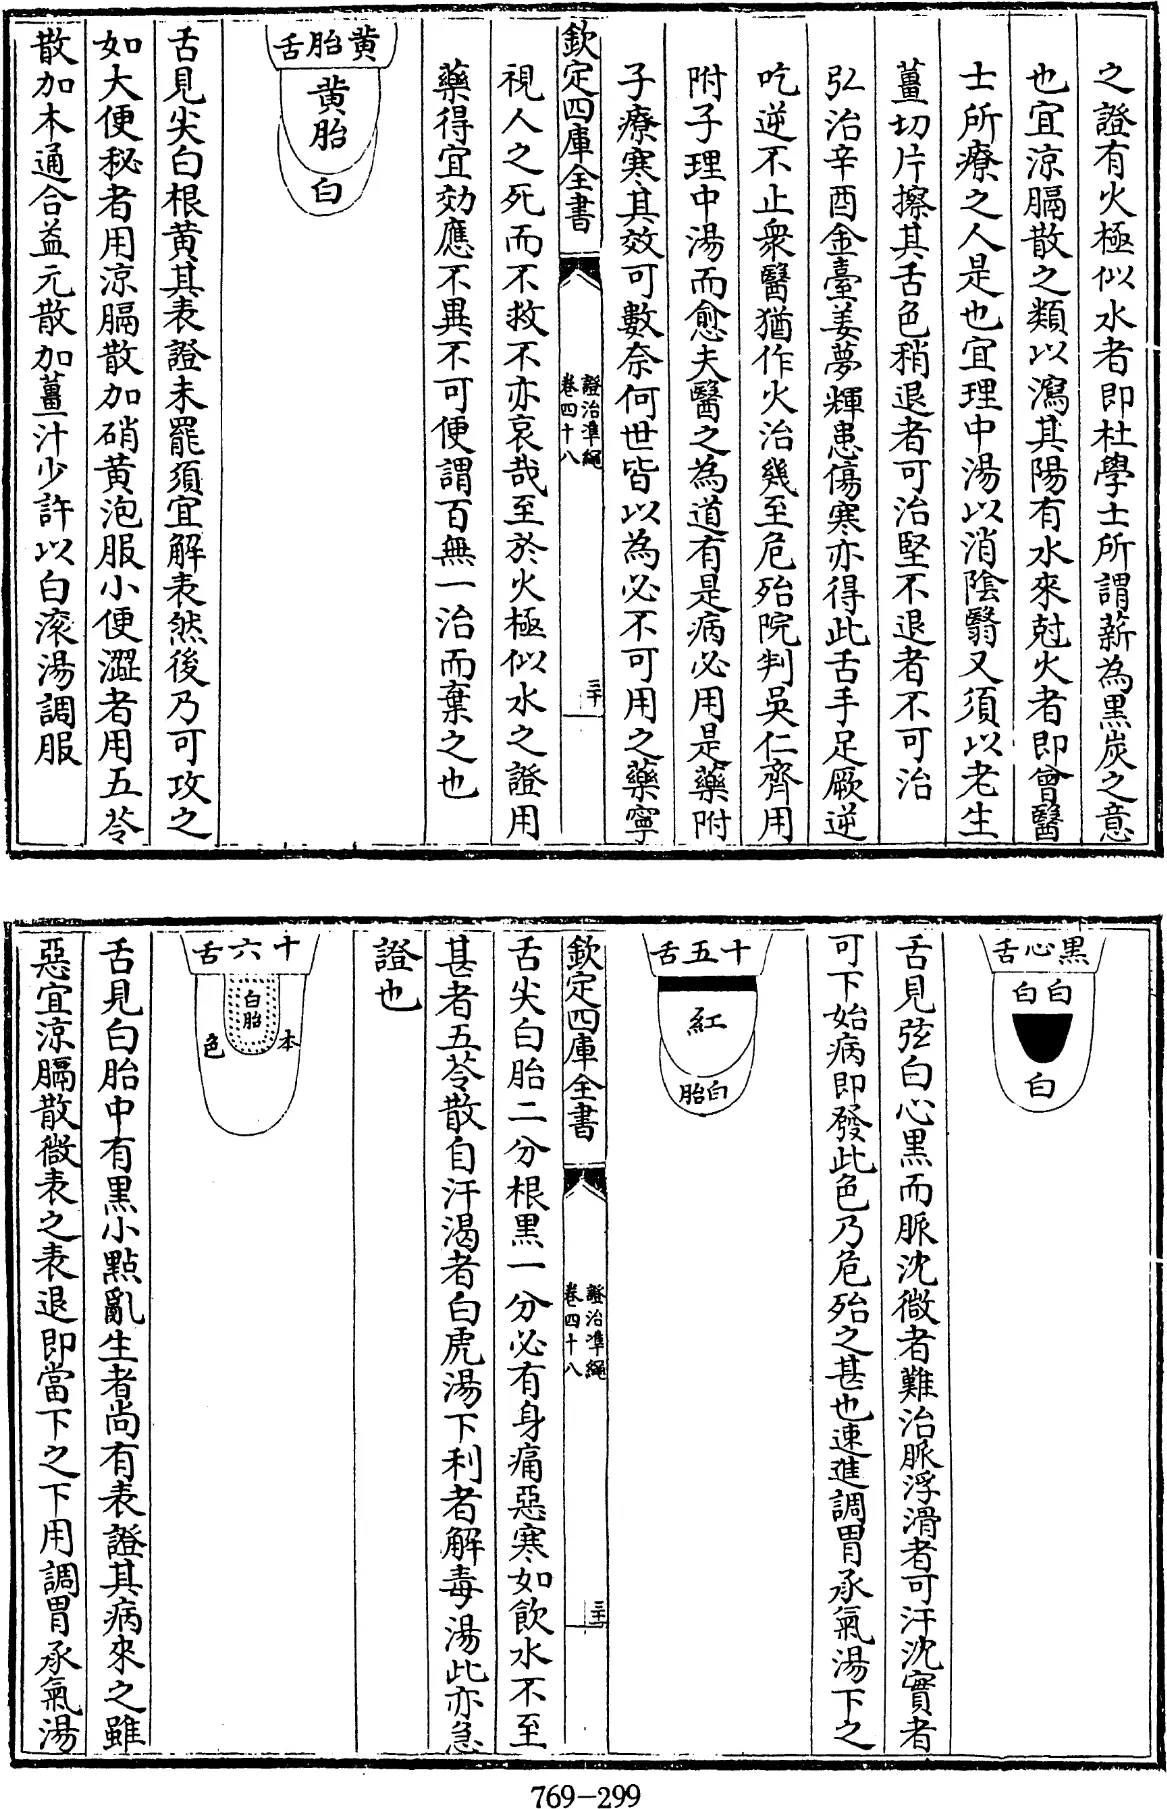 之證有火極似水者即杜學士所謂薪為黒炭之意
也宜涼膈散之類以瀉其陽有水來尅火者即曾醫
士所療之人是也宜理中湯以消陰翳又須以老生
薑切片擦其舌色稍退者可治堅不退者不可治
弘治辛酉金臺姜夢輝患傷寒亦得此舌手足厥逆
吃逆不止衆醫猶作火治幾至危殆院判吳仁齊用
附子理中湯而愈夫醫之為道有是病必用是藥附
子療寒其效可數奈何世皆以為必不可用之藥寧
欽定四庫全書
證治準繩
卷四十八
三十
視人之死而不救不亦哀哉至於火極似水之證用
藥得宜効應不異不可便謂百無一治而棄之也
黄胎舌
黄胎
白
舌見尖白根黄其表證未罷須宜解表然後乃可攻之
如大便秘者用涼膈散加硝黄泡服小便澀者用五苓
散加木通合益元散加薑汁少許以白滚湯調服
黒心舌
白白
白
舌見弦白心黒而脈沈微者難治脈浮滑者可汗沈實者
可下始病即發此色乃危殆之甚也速進調胃承氣湯下之
十五舌
紅
白胎
欽定四庫全書
證治準繩
卷四十八
三十一
舌尖白胎二分根黒一分必有身痛惡寒如飲水不至
甚者五苓散自汗渴者白虎湯下利者解毒湯此亦急
證也
十六舌
白胎
本色
舌見白胎中有黒小點亂生者尚有表證其病來之雖
惡宜涼膈散微表之表退即當下之下用調胃承氣湯
769-299